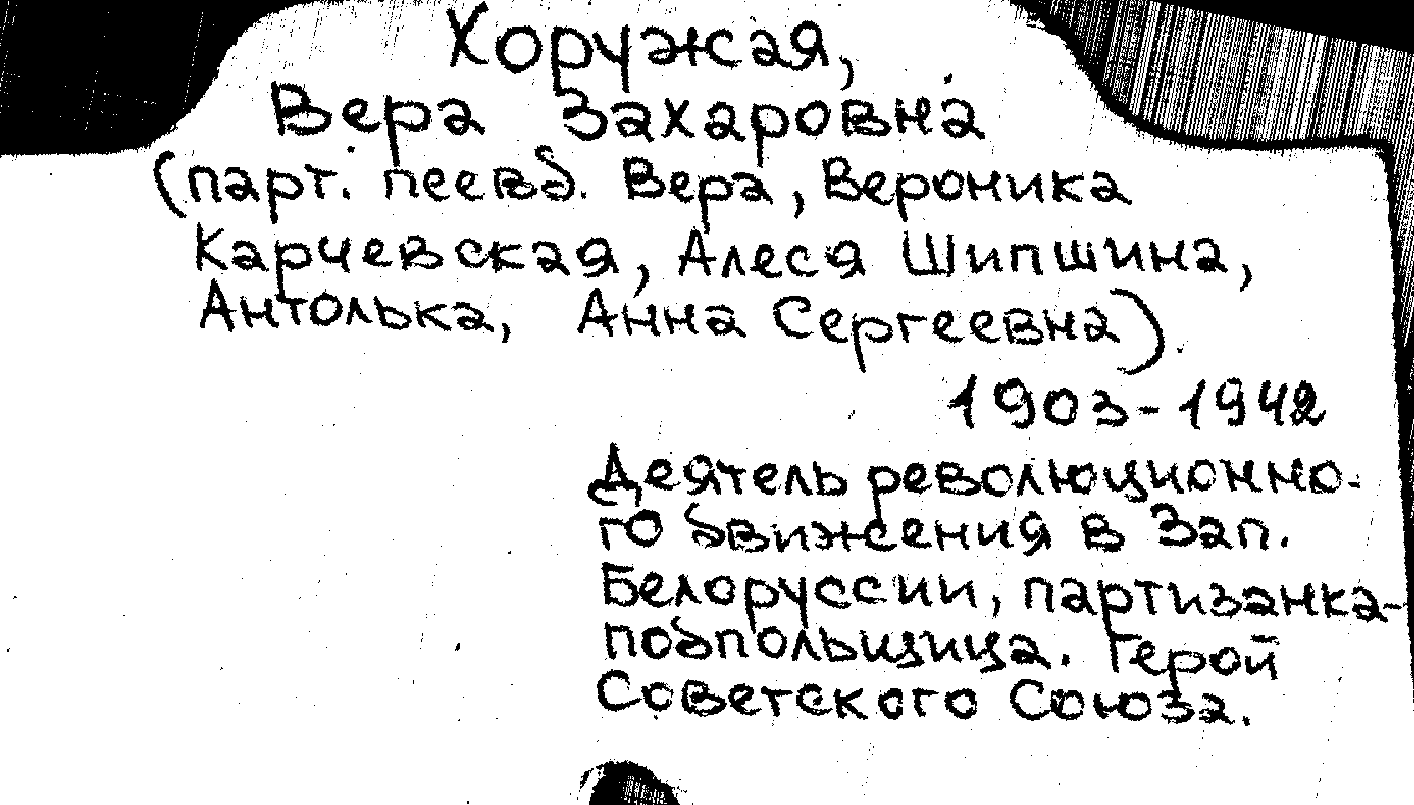 Хоружая,
Вера Захаровна
(парт. псевд. Вера, Вероника
Карчевская, Алеся Шипшина,
Антолька, Анна Сергеевна).
1903-1942
Деятель революционно-
го движения в Зап.
Белоруссии, партизанка-
подпольщица. Герой
Советского Союза.